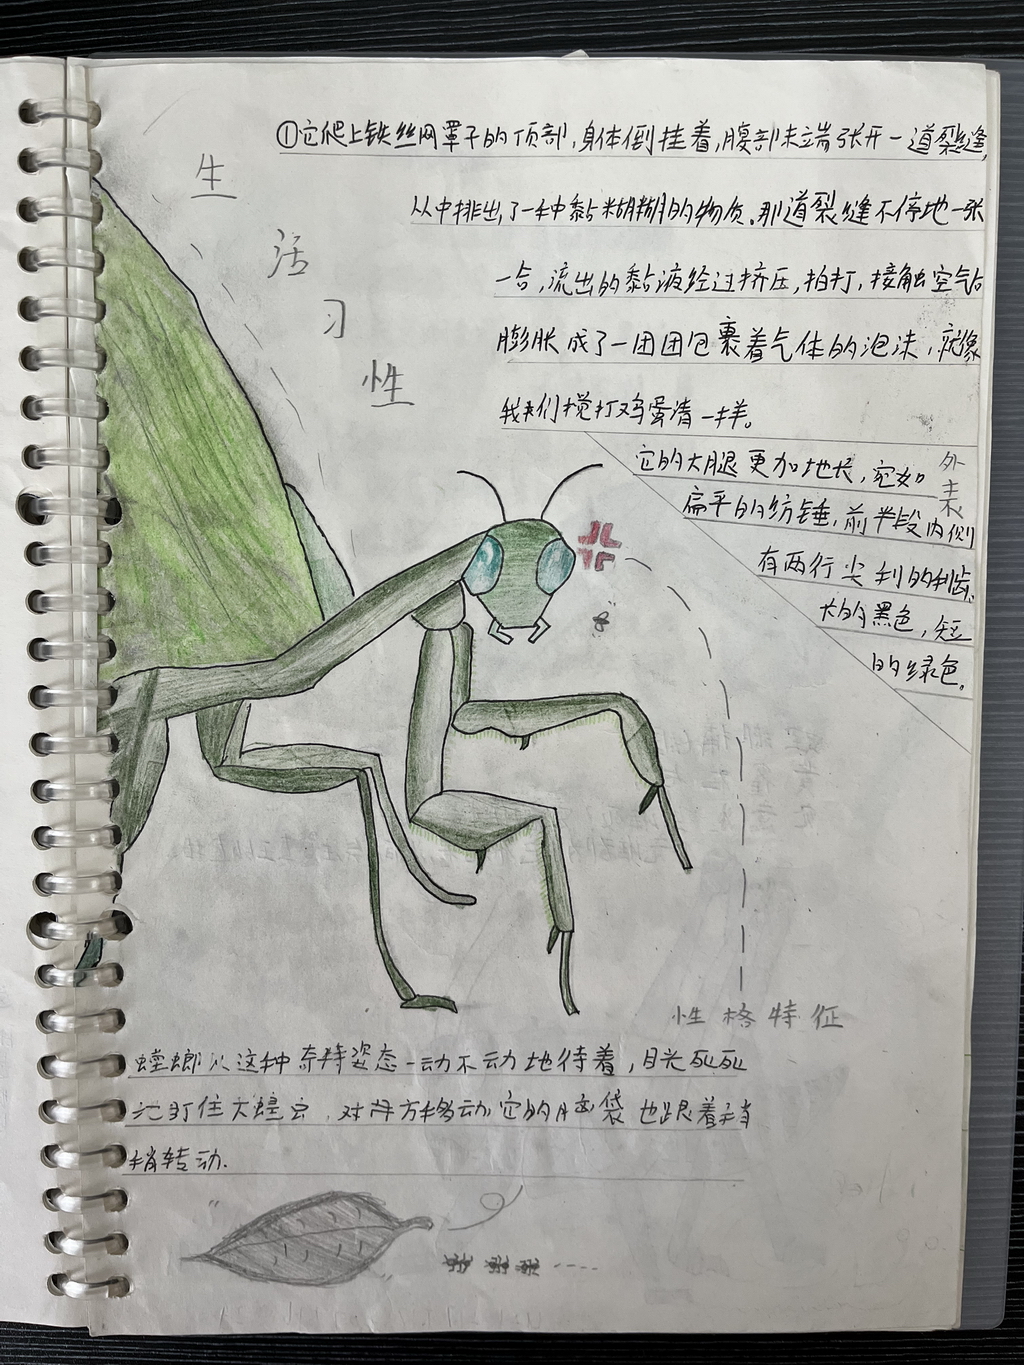 生活习性
①它爬上铁丝网罩子的顶部,身体倒挂着,腹部末端张开一道裂缝,
从中排出了一种黏糊糊的物质。那道裂缝不停地一张
一合,流出的黏液经过挤压,拍打,接触空气后
膨胀成了一团团包裹着气体的泡沫,就像
我们搅打鸡蛋清一样。
外表
它的大腿更加地长,宛如
扁平的纺锤,前半段内侧
有两行尖利的利齿。
大的黑色,短
的绿色。
性格特征
螳螂以这种奇特姿态一动不动地待着,目光死死
地盯住大蝗虫,对方移动它的脑袋也跟着
稍转动.